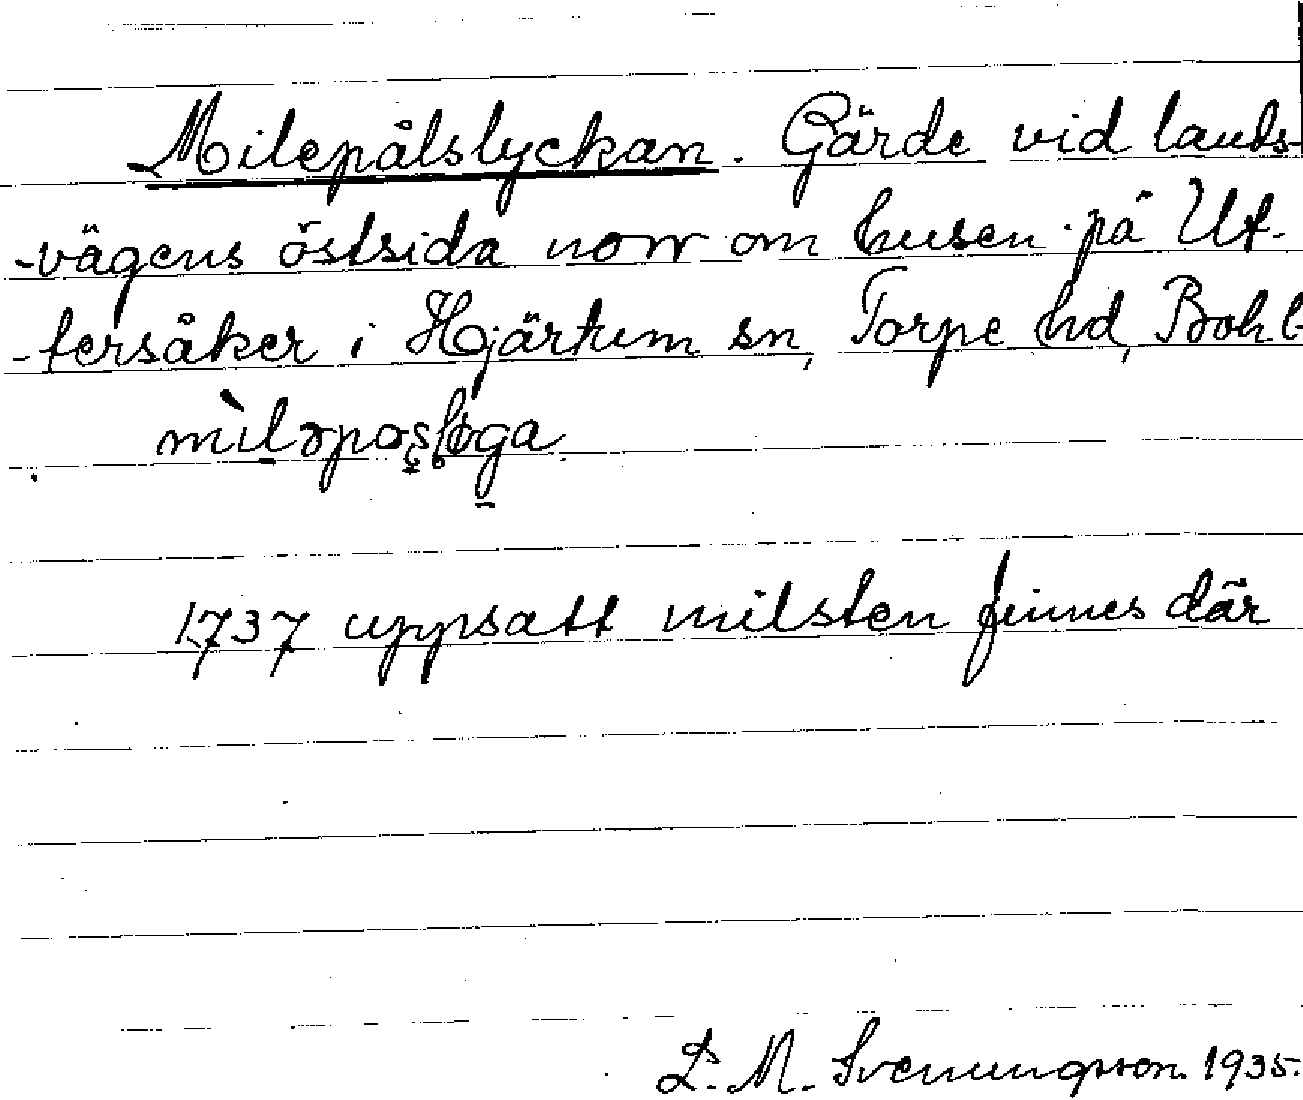 Milepålslyckan. Gärde vid lands-
-vägens östsida norr om husen på Ut-
-fersåker i Hjärtum sn, Torpe hd, Bohl
1737 uppsatt milsten finnes där
L. M. Svenungsson. 1935.